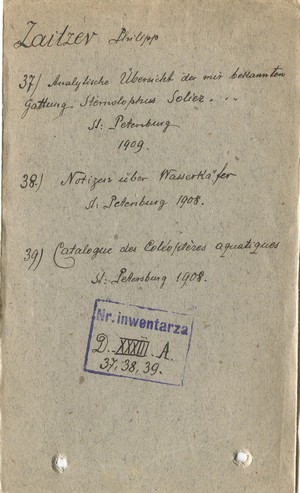 Zaitzev Philipp
37) Analytische Übersicht der mir bekannten
Gattung Sternolophus Solier. . .
St: Petersburg
1909.
38.) Notizen über Wasserkäfer
St. Petersburg 1908.
39) Catalogue des Coléoptères aquatiques
St: Petersburg 1908.
Nr. inwentarza
D. XXXIII. A.
37, 38, 39.